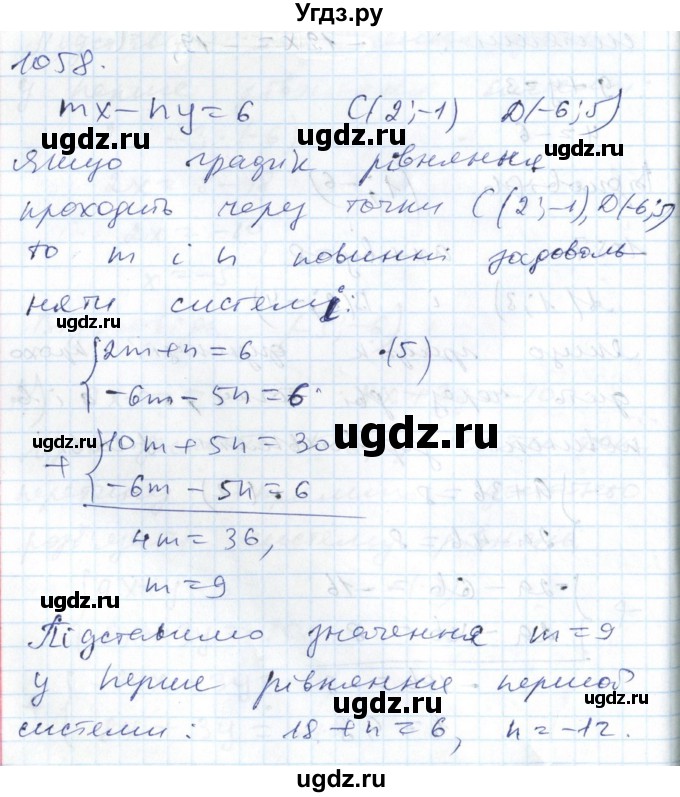 Угдз.ру
1058.
mx-ny=6 C(2;-1) D(-6;5)
Якщо графік рівняння
проходить через точки C(2;-1), D(-6;5)
то m і n повинні задоволь
няти системі:
{2m+n=6 ·(5)
-6m-5n=6
+ {10m+5n=30
-6m-5n=6
4m=36,
m=9
Підставимо значення m=9
у перше рівняння першої
системи: 18+n=6, n=-12.
ugdz.ru
ugdz.ru
ugdz.ru
ugdz.ru
ugdz.ru
ugdz.ru
ugdz.ru
ugdz.ru
ugdz.ru
ugdz.ru
ugdz.ru
ugdz.ru
ugdz.ru